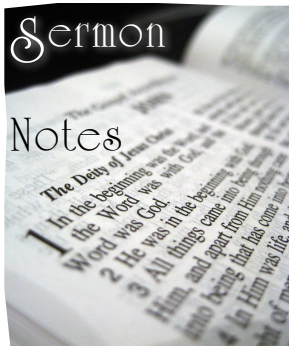 Sermon
Notes
The Deity of Jesus Christ
1 In the beginning was the
the Word was with God, and the
Word was God.
2 He was in the beginning with
3 All things came into being
Him, and apart from Him nothing
into being that has come into
4 In Him was life, and